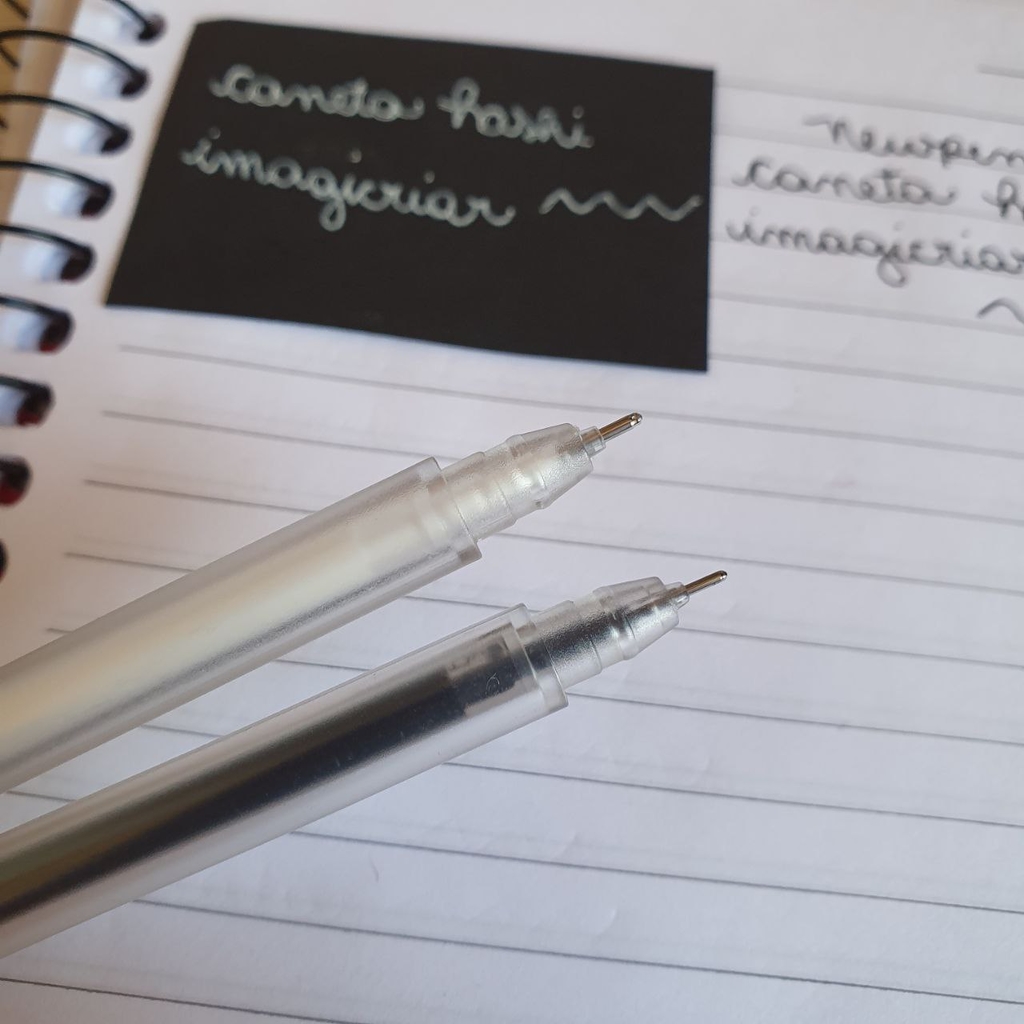 caneta hashi
imagicriar
newpen
caneta h
imagicriar